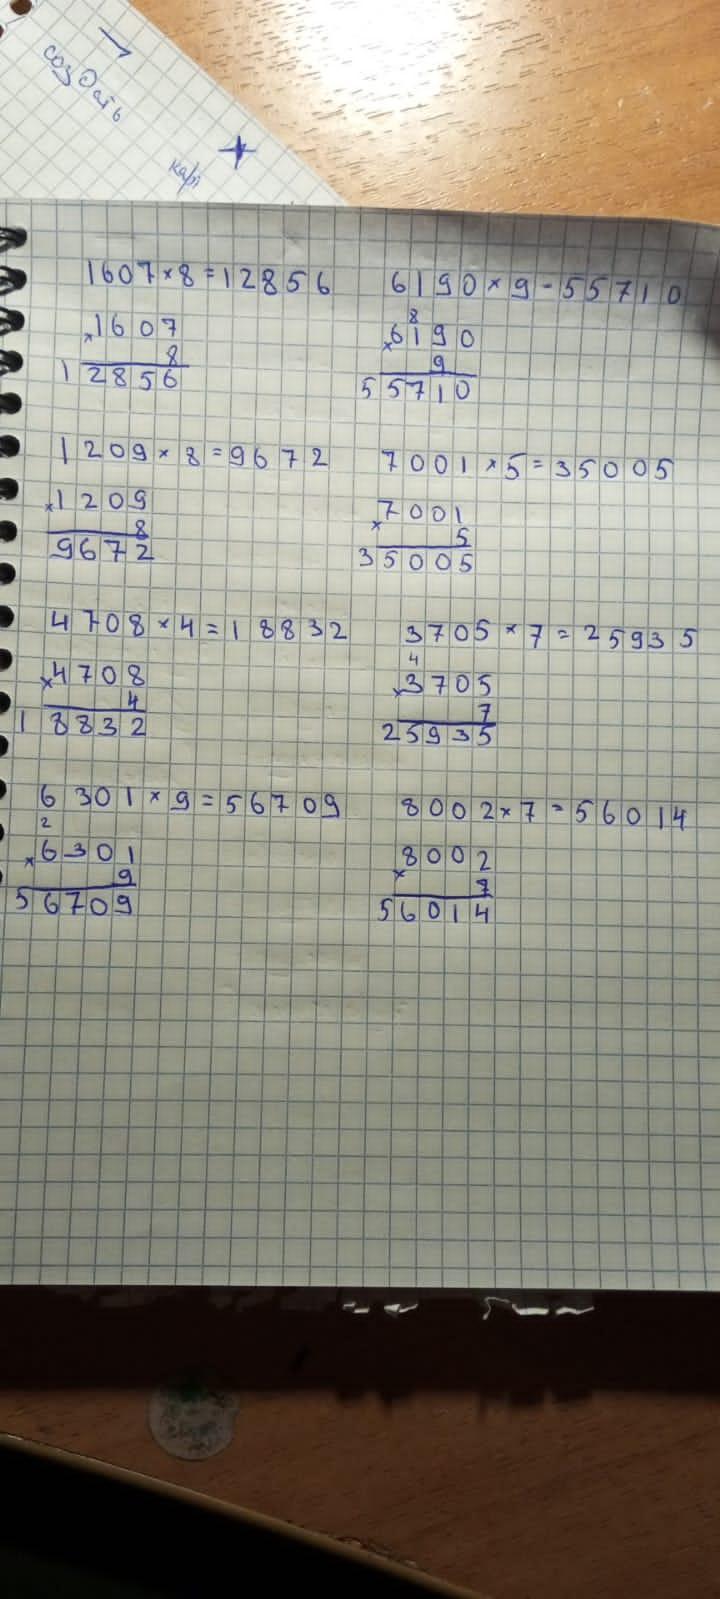 создать
1607×8=12856
×1607
8
12856
6190×9-55710
8
×6190
9
55710
1209×8=9672
×1209
8
9672
7001×5=35005
×7001
5
35005
4708×4=18832
×4708
4
18832
3705×7=25935
4
×3705
7
25935
6301×9=56709
2
×6301
9
56709
8002×7=56014
×8002
7
56014